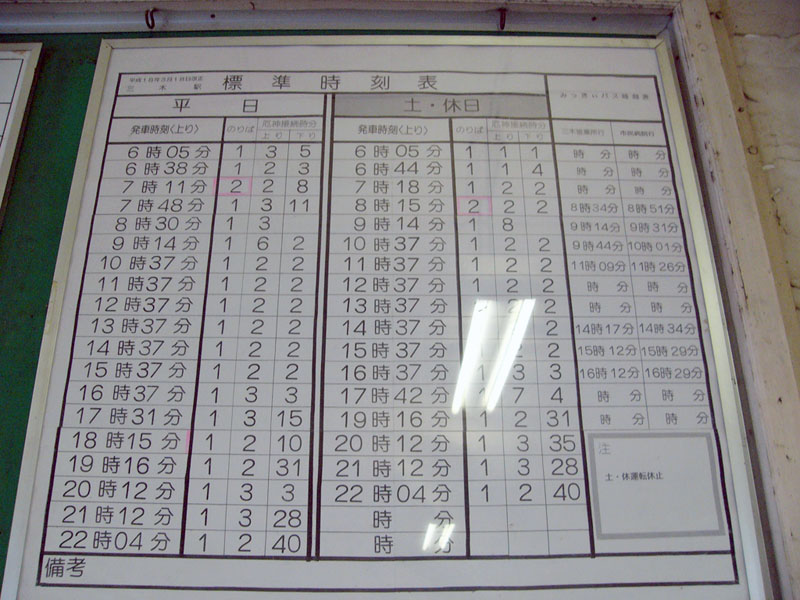 平成18年3月18日改正
三木駅
標準時刻表
みっきぃバス時刻表
平日
土・休日
発車時刻(上り) のりば 厄神接続時分 上り 下り 発車時刻(上り) のりば 厄神接続時分 上り 下り 三木営業所行 市民病院行
6時05分 1 3 5 6時05分 1 1 1 時 分 時 分
6時38分 1 2 3 6時44分 1 1 4 時 分 時 分
7時11分 2 2 8 7時18分 1 2 2 時 分 時 分
7時48分 1 3 11 8時15分 2 2 2 8時34分 8時51分
8時30分 1 3 9時14分 1 8 9時14分 9時31分
9時14分 1 6 2 10時37分 1 2 2 9時44分 10時01分
10時37分 1 2 2 11時37分 1 2 2 11時09分 11時26分
11時37分 1 2 2 12時37分 1 2 2 時 分 時 分
12時37分 1 2 2 13時37分 2 2 時 分 時 分
13時37分 1 2 2 14時37分 2 14時17分 14時34分
14時37分 1 2 2 15時37分 2 2 15時12分 15時29分
15時37分 1 2 2 16時37分 3 3 16時12分 16時29分
16時37分 1 3 3 17時42分 1 7 4 時 分 時 分
17時31分 1 3 15 19時16分 1 2 31 時 分 時 分
18時15分 1 2 10 20時12分 1 3 35
19時16分 1 2 31 21時12分 1 3 28
20時12分 1 3 3 22時04分 1 2 40
21時12分 1 3 28 時 分
22時04分 1 2 40 時 分
注
土・休運転休止
備考